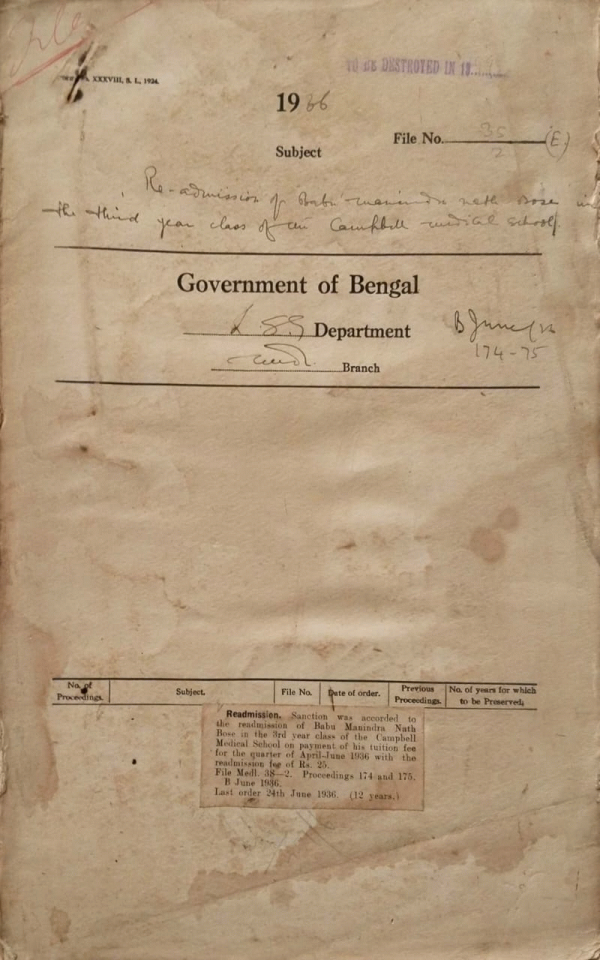 XXXVIII, S. L., 1924.
TO BE DESTROYED IN 19
1936
File No. 2 (E)
Subject
Re-admission of Babu Manindra Nath Bose in
the third year class of the Campbell medical school.
Government of Bengal
L S.G Department
B June/36
174-75
Medl. Branch
No. of Proceedings. Subject. File No. Date of order. Previous Proceedings. No. of years for which to be Preserved.
Readmission. Sanction was accorded to
the readmission of Babu Manindra Nath
Bose in the 3rd year class of the Campbell
Medical School on payment of his tuition fee
for the quarter of April-June 1936 with the
readmission fee of Rs. 25.
File Medl. 38—2. Proceedings 174 and 175.
B June 1936.
Last order 24th June 1936. (12 years.)